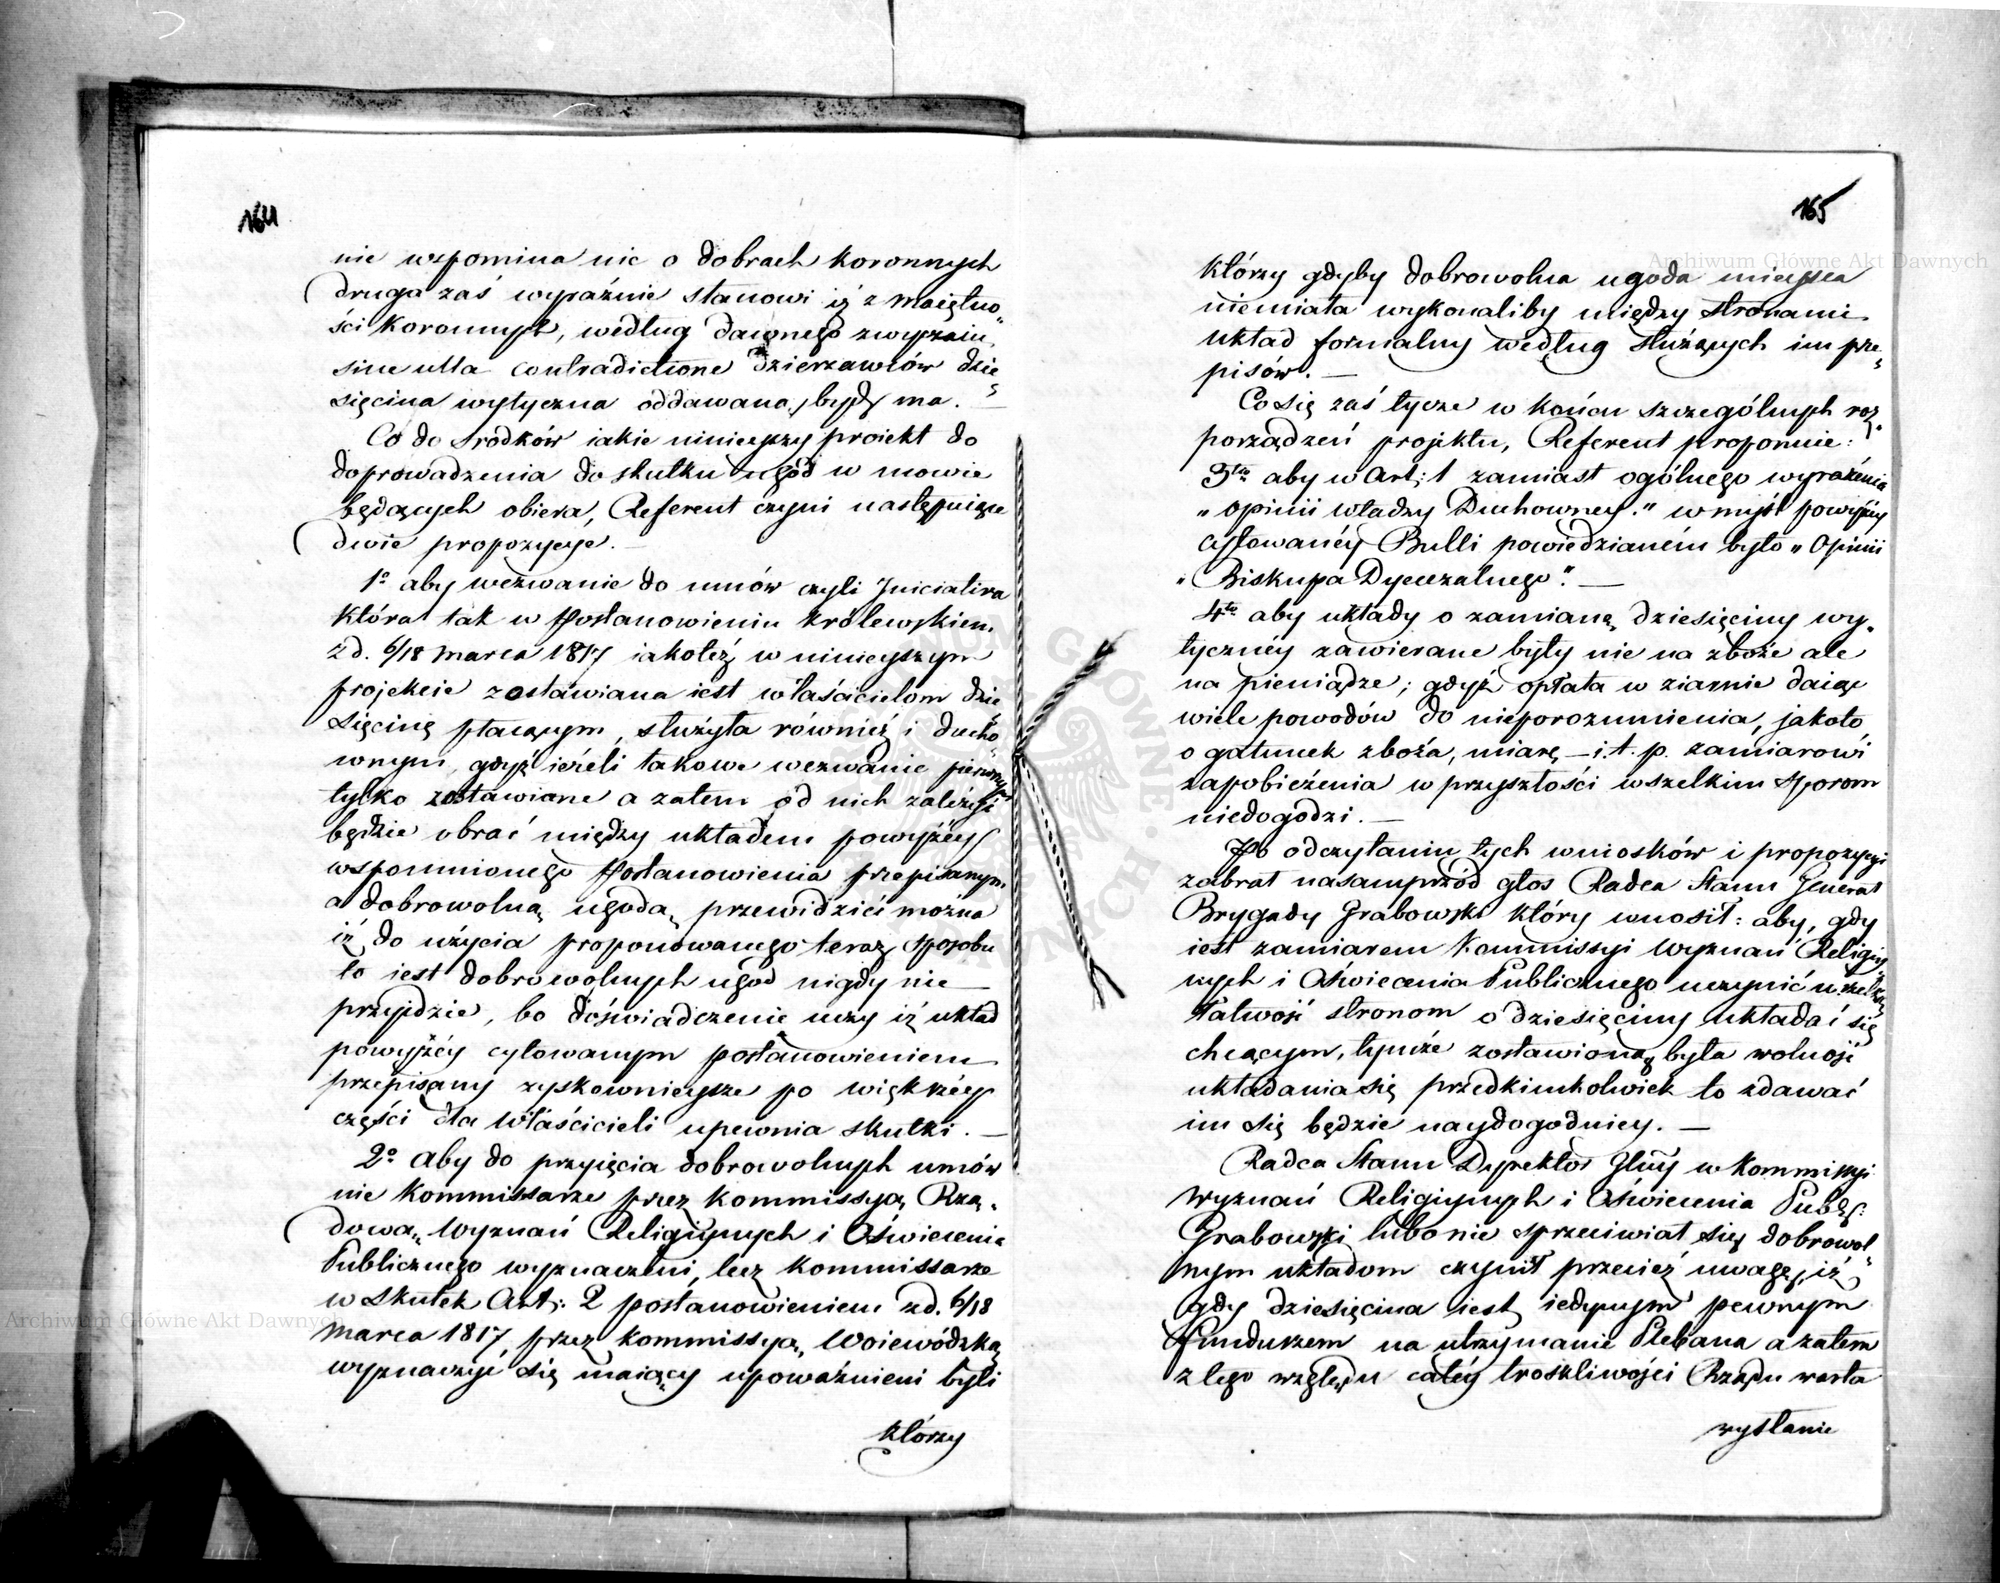 164
nie wspomina nic o dobrach koronnych
druga zaś wyraźnie stanowi iż z maiętno„
ści koronnych, według dawnego zwyczaiu,
sine ulla contradictione dzierzawców dzie„
sięcina wytyczna oddawana bydź ma. —
Co do srodków iakie ninieyszy proiekt do
doprowadzenia do skutku ugód w mowie
będących obiera, Referent czyni następuiące
dwie propozycye. —
1º aby wezwanie do umów czyli Jniciativa
która tak w Postanowieniu królewskiem
z d. 6/18 marca 1817 iakoteż w ninieyszym
projekcie zostawiana iest właścicielom dzie„
sięcinę płacącym, służyła również i ducho„
wnym, gdyż ieżeli takowe wezwanie pierwszym
tylko zostawione a zatem od nich zależeć
będzie obrać między układem powyżéy
wspomnionego Postanowienia przepisanym
a dobrowolną ugodą, przewidzieć można
iż do użycia proponowanego teraz sposobu
to iest dobrowolnych ugod nigdy nie
przyjdzie, bo doświadczenie uczy iż układ
powyżéy cytowanym postanowieniem
przepisany zyskownieysze po większéy
części dla właścicieli upewnia skutki. —
2º aby do przyięcia dobrowolnych umów
nie Kommissarze przez Kommissyą Rzą„
dową Wyznań Religiynych i Oświecenia
Publicznego wyznaczeni, lecz Kommissarze
w skutek Art: 2 postanowieniem z d. 6/18
marca 1817, przez Kommissyą Woiewódzką
wyznaczyć się maiący upoważnieni byli
którzy
165
którzy gdyby dobrowolna ugoda mieysca
niemiała wykonaliby między stronami
układ formalny według służących im prze„
pisów. —
Co się zaś tycze w końcu szczególnych roz„
porządzeń projektu, Referent proponuie:
3tio aby w Art: 1 zamiast ogólnego wyrażenia
„opinii władzy Duchowney." w myśl powyżey
cytowanéy Bulli powiedzianém było „Opinii
„Biskupa Dyecezalnego". —
4to aby układy o zamianę dziesięciny wy„
tycznéy zawierane były nie na zboże ale
na pieniądze; gdyż opłata w ziarnie daiąc
wiele powodów do nieporozumienia, jakoto
o gatunek zboża, miarę — i.t.p. zamiarowi
zapobieżenia w przyszłości wszelkim sporom
niedogodzi. —
Po odczytaniu tych wniosków i propozycyi
zabrał nasamprzód głos Radca Stanu Generał
Brygady Grabowski który wnosił: aby, gdy
iest zamiarem Kommissyi Wyznań Religiy„
nych i Oświecenia Publicznego uczynić wszelką
łatwość stronom o dziesięciny układać się
chcącym, tymże zostawioną była wolność
układania się przedkimkolwiek to zdawać
im się będzie naydogodniey. —
Radca Stanu Dyrektor Glny w Kommissyi
Wyznań Religiynych i Oświecenia Publ:
Grabowski lubo nie sprzeciwiał się dobrowol„
nym układom czynił przecież uwagę, iż
gdy dziesięcina iest iedynym pewnym
funduszem na utrzymanie Plebana a zatem
z tego względu całéy troskliwości Rządu warta
wysłanie
Archiwum Główne Akt Dawnych
Archiwum Główne Akt Dawnych